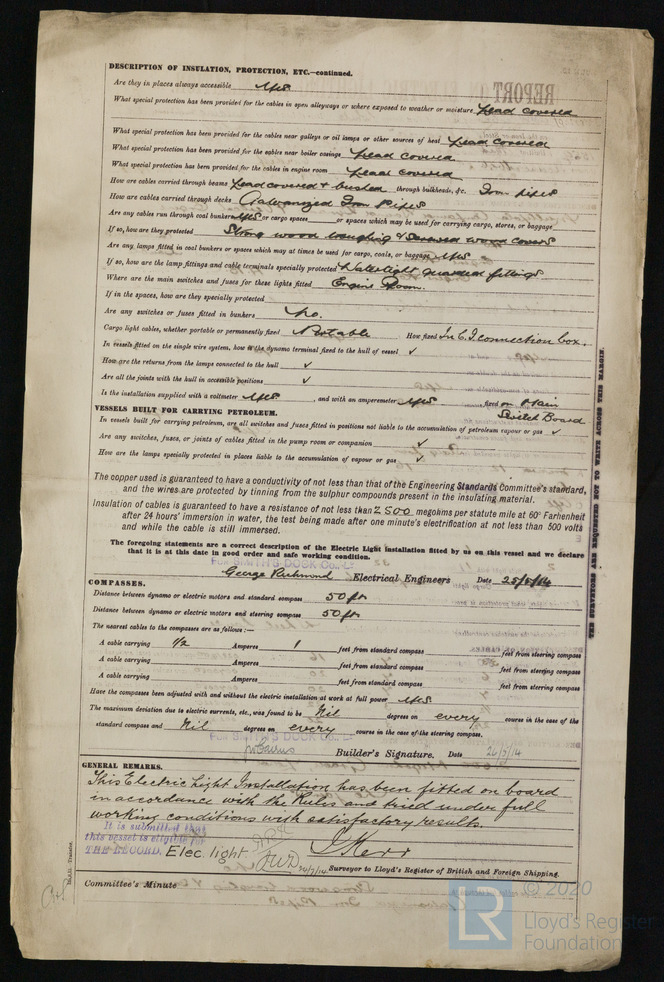 DESCRIPTION OF INSULATION, PROTECTION, ETC.—continued.
Are they in places always accessible yes
What special protection has been provided for the cables in open alleyways or where exposed to weather or moisture Lead covered
What special protection has been provided for the cables near galleys or oil lamps or other sources of heat Lead covered
What special protection has been provided for the cables near boiler casings Lead covered
What special protection has been provided for the cables in engine room Lead covered
How are cables carried through beams Lead covered & bushed through bulkheads, &c. Iron pipes
How are cables carried through decks Galvanized Iron Pipes
Are any cables run through coal bunkers yes or cargo spaces or spaces which may be used for carrying cargo, stores, or baggage
If so, how are they protected Strong wood & wood covers
Are any lamps fitted in coal bunkers or spaces which may at times be used for cargo, coals, or baggage yes
If so, how are the lamp fittings and cable terminals specially protected Watertight guarded fittings
Where are the main switches and fuses for these lights fitted Engine Room.
If in the spaces, how are they specially protected
Are any switches or fuses fitted in bunkers No.
Cargo light cables, whether portable or permanently fixed Portable How fixed In C.I. connection box.
In vessels fitted on the single wire system, how is the dynamo terminal fixed to the hull of vessel ✓
How are the returns from the lamps connected to the hull ✓
Are all the joints with the hull in accessible positions ✓
Is the installation supplied with a voltmeter yes, and with an amperemeter yes fixed on Main
Switch Board
VESSELS BUILT FOR CARRYING PETROLEUM.
In vessels built for carrying petroleum, are all switches and fuses fitted in positions not liable to the accumulation of petroleum vapour or gas ✓
Are any switches, fuses, or joints of cables fitted in the pump room or companion ✓
How are the lamps specially protected in places liable to the accumulation of vapour or gas ✓
The copper used is guaranteed to have a conductivity of not less than that of the Engineering Standards Committee's standard,
and the wires are protected by tinning from the sulphur compounds present in the insulating material.
Insulation of cables is guaranteed to have a resistance of not less than 2500 megohms per statute mile at 60° Farhenheit
after 24 hours' immersion in water, the test being made after one minute's electrification at not less than 500 volts
and while the cable is still immersed.
The foregoing statements are a correct description of the Electric Light installation fitted by us on this vessel and we declare
that it is at this date in good order and safe working condition.
FOR SMITH'S DOCK CO., LD
George Richmond Electrical Engineers Date 25/5/14
COMPASSES.
Distance between dynamo or electric motors and standard compass 50 ft
Distance between dynamo or electric motors and steering compass 50 ft
The nearest cables to the compasses are as follows:—
A cable carrying 1/2 Amperes 1 feet from standard compass feet from steering compass
A cable carrying Amperes feet from standard compass feet from steering compass
A cable carrying Amperes feet from standard compass feet from steering compass
Have the compasses been adjusted with and without the electric installation at work at full power yes
The maximum deviation due to electric currents, etc., was found to be Nil degrees on every course in the case of the
standard compass and Nil degrees on every course in the case of the steering compass.
FOR SMITH'S DOCK CO. LD
Builder's Signature. Date 26/5/14
GENERAL REMARKS.
This Electric Light Installation has been fitted on board
in accordance with the Rules and tried under full
working conditions with satisfactory results.
It is submitted that
this vessel is eligible for
THE RECORD. Elec. light
Surveyor to Lloyd's Register of British and Foreign Shipping.
Committee's Minute
THE SURVEYORS ARE REQUESTED NOT TO WRITE ACROSS THIS MARGIN.
LR
© 2020
Lloyd's Register
Foundation